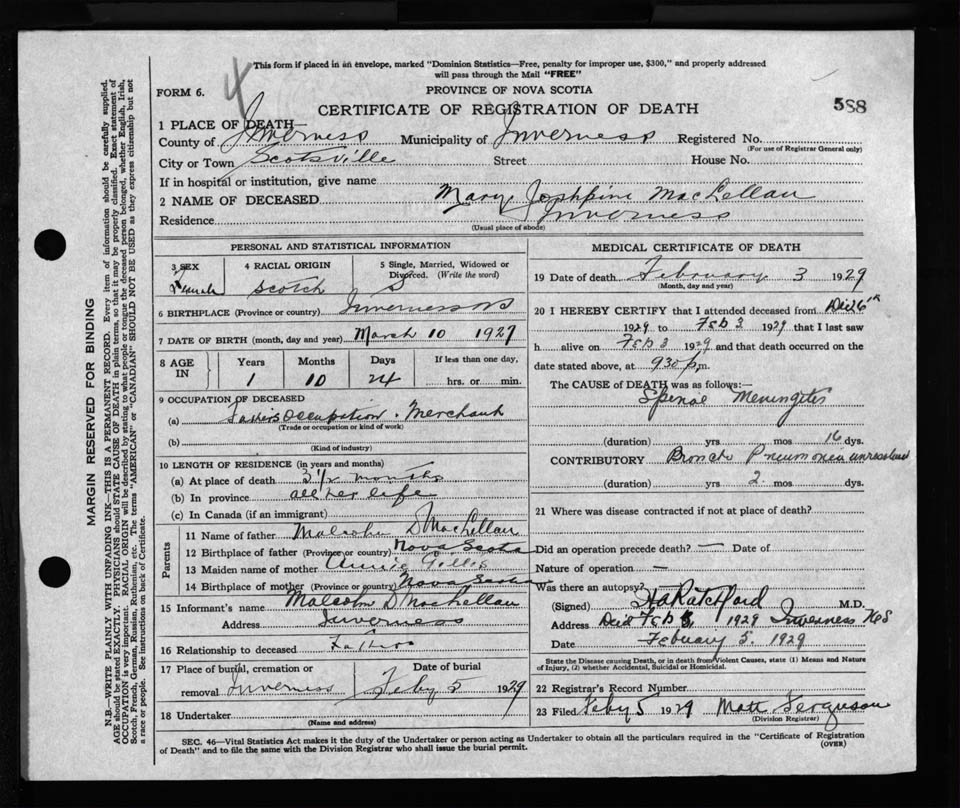 4
This form if placed in an envelope, marked "Dominion Statistics—Free, penalty for improper use, $300," and properly addressed
will pass through the Mail "FREE"
FORM 6.
PROVINCE OF NOVA SCOTIA
CERTIFICATE OF REGISTRATION OF DEATH
588
1 PLACE OF DEATH—
County of Inverness Municipality of Inverness Registered No.
(For use of Registrar General only)
City or Town Scotsville Street House No.
If in hospital or institution, give name
2 NAME OF DECEASED Mary Josphine MacLellan
Residence Inverness
(Usual place of abode)
PERSONAL AND STATISTICAL INFORMATION
3 SEX
4 RACIAL ORIGIN
5 Single, Married, Widowed or
Divorced. (Write the word)
Female Scotch S
6 BIRTHPLACE (Province or country) Inverness NS
7 DATE OF BIRTH (month, day and year) March 10 1927
8 AGE IN
Years Months Days If less than one day,
1 10 24 hrs. or min.
9 OCCUPATION OF DECEASED
(a) Fathers Occupation. Merchant
(Trade or occupation or kind of work)
(b)
(Kind of industry)
10 LENGTH OF RESIDENCE (in years and months)
(a) At place of death 3 1/2 months
(b) In province all her life
(c) In Canada (if an immigrant)
Parents
11 Name of father Malcolm D MacLellan
12 Birthplace of father (Province or country) Nova Scotia
13 Maiden name of mother Annie Gillis
14 Birthplace of mother (Province or country) Nova Scotia
15 Informant's name Malcolm D MacLellan
Address Inverness
16 Relationship to deceased Father
17 Place of burial, cremation or
Date of burial
removal Inverness Feby 5 1929
18 Undertaker
(Name and address)
MEDICAL CERTIFICATE OF DEATH
19 Date of death February 3 1929
(Month, day and year)
20 I HEREBY CERTIFY that I attended deceased from
1929 to Feb 3 1929 that I last saw
h alive on Feb 3 1929 and that death occurred on the
date stated above, at 930 p.m.
The CAUSE OF DEATH was as follows:—
Spinal Meningitis
(duration) yrs mos 16 dys.
CONTRIBUTORY Broncho Pneumonia unresolved
(duration) yrs 2 mos dys.
21 Where was disease contracted if not at place of death?
Did an operation precede death? — Date of
Nature of operation —
Was there an autopsy?
(Signed) Ratchford M.D.
Address Died Feb 3, 1929 Inverness NS
Date February 5. 1929
State the Disease causing Death, or in death from Violent Causes, state (1) Means and Nature
of Injury, (2) whether Accidental, Suicidal or Homicidal.
22 Registrar's Record Number
23 Filed Feby 5 1929 Matt Ferguson
(Division Registrar)
SEC. 46—Vital Statistics Act makes it the duty of the Undertaker or person acting as Undertaker to obtain all the particulars required in the "Certificate of Registration
of Death" and to file the same with the Division Registrar who shall issue the burial permit.
(OVER)
MARGIN RESERVED FOR BINDING
N.B.—WRITE PLAINLY WITH UNFADING INK—THIS IS A PERMANENT RECORD. Every item of information should be carefully supplied.
AGE should be stated EXACTLY. PHYSICIANS should STATE CAUSE OF DEATH in plain terms, so that it may be properly classified. Exact statement of
OCCUPATION is very important. RACIAL ORIGIN will be described by stating to what people or tongue the deceased person belonged, whether English, Irish,
Scotch, French, German, Russian, Ruthenian, etc. The terms "AMERICAN" or "CANADIAN" SHOULD NOT BE USED as they express citizenship but not
a race or people. See instructions on back of Certificate.